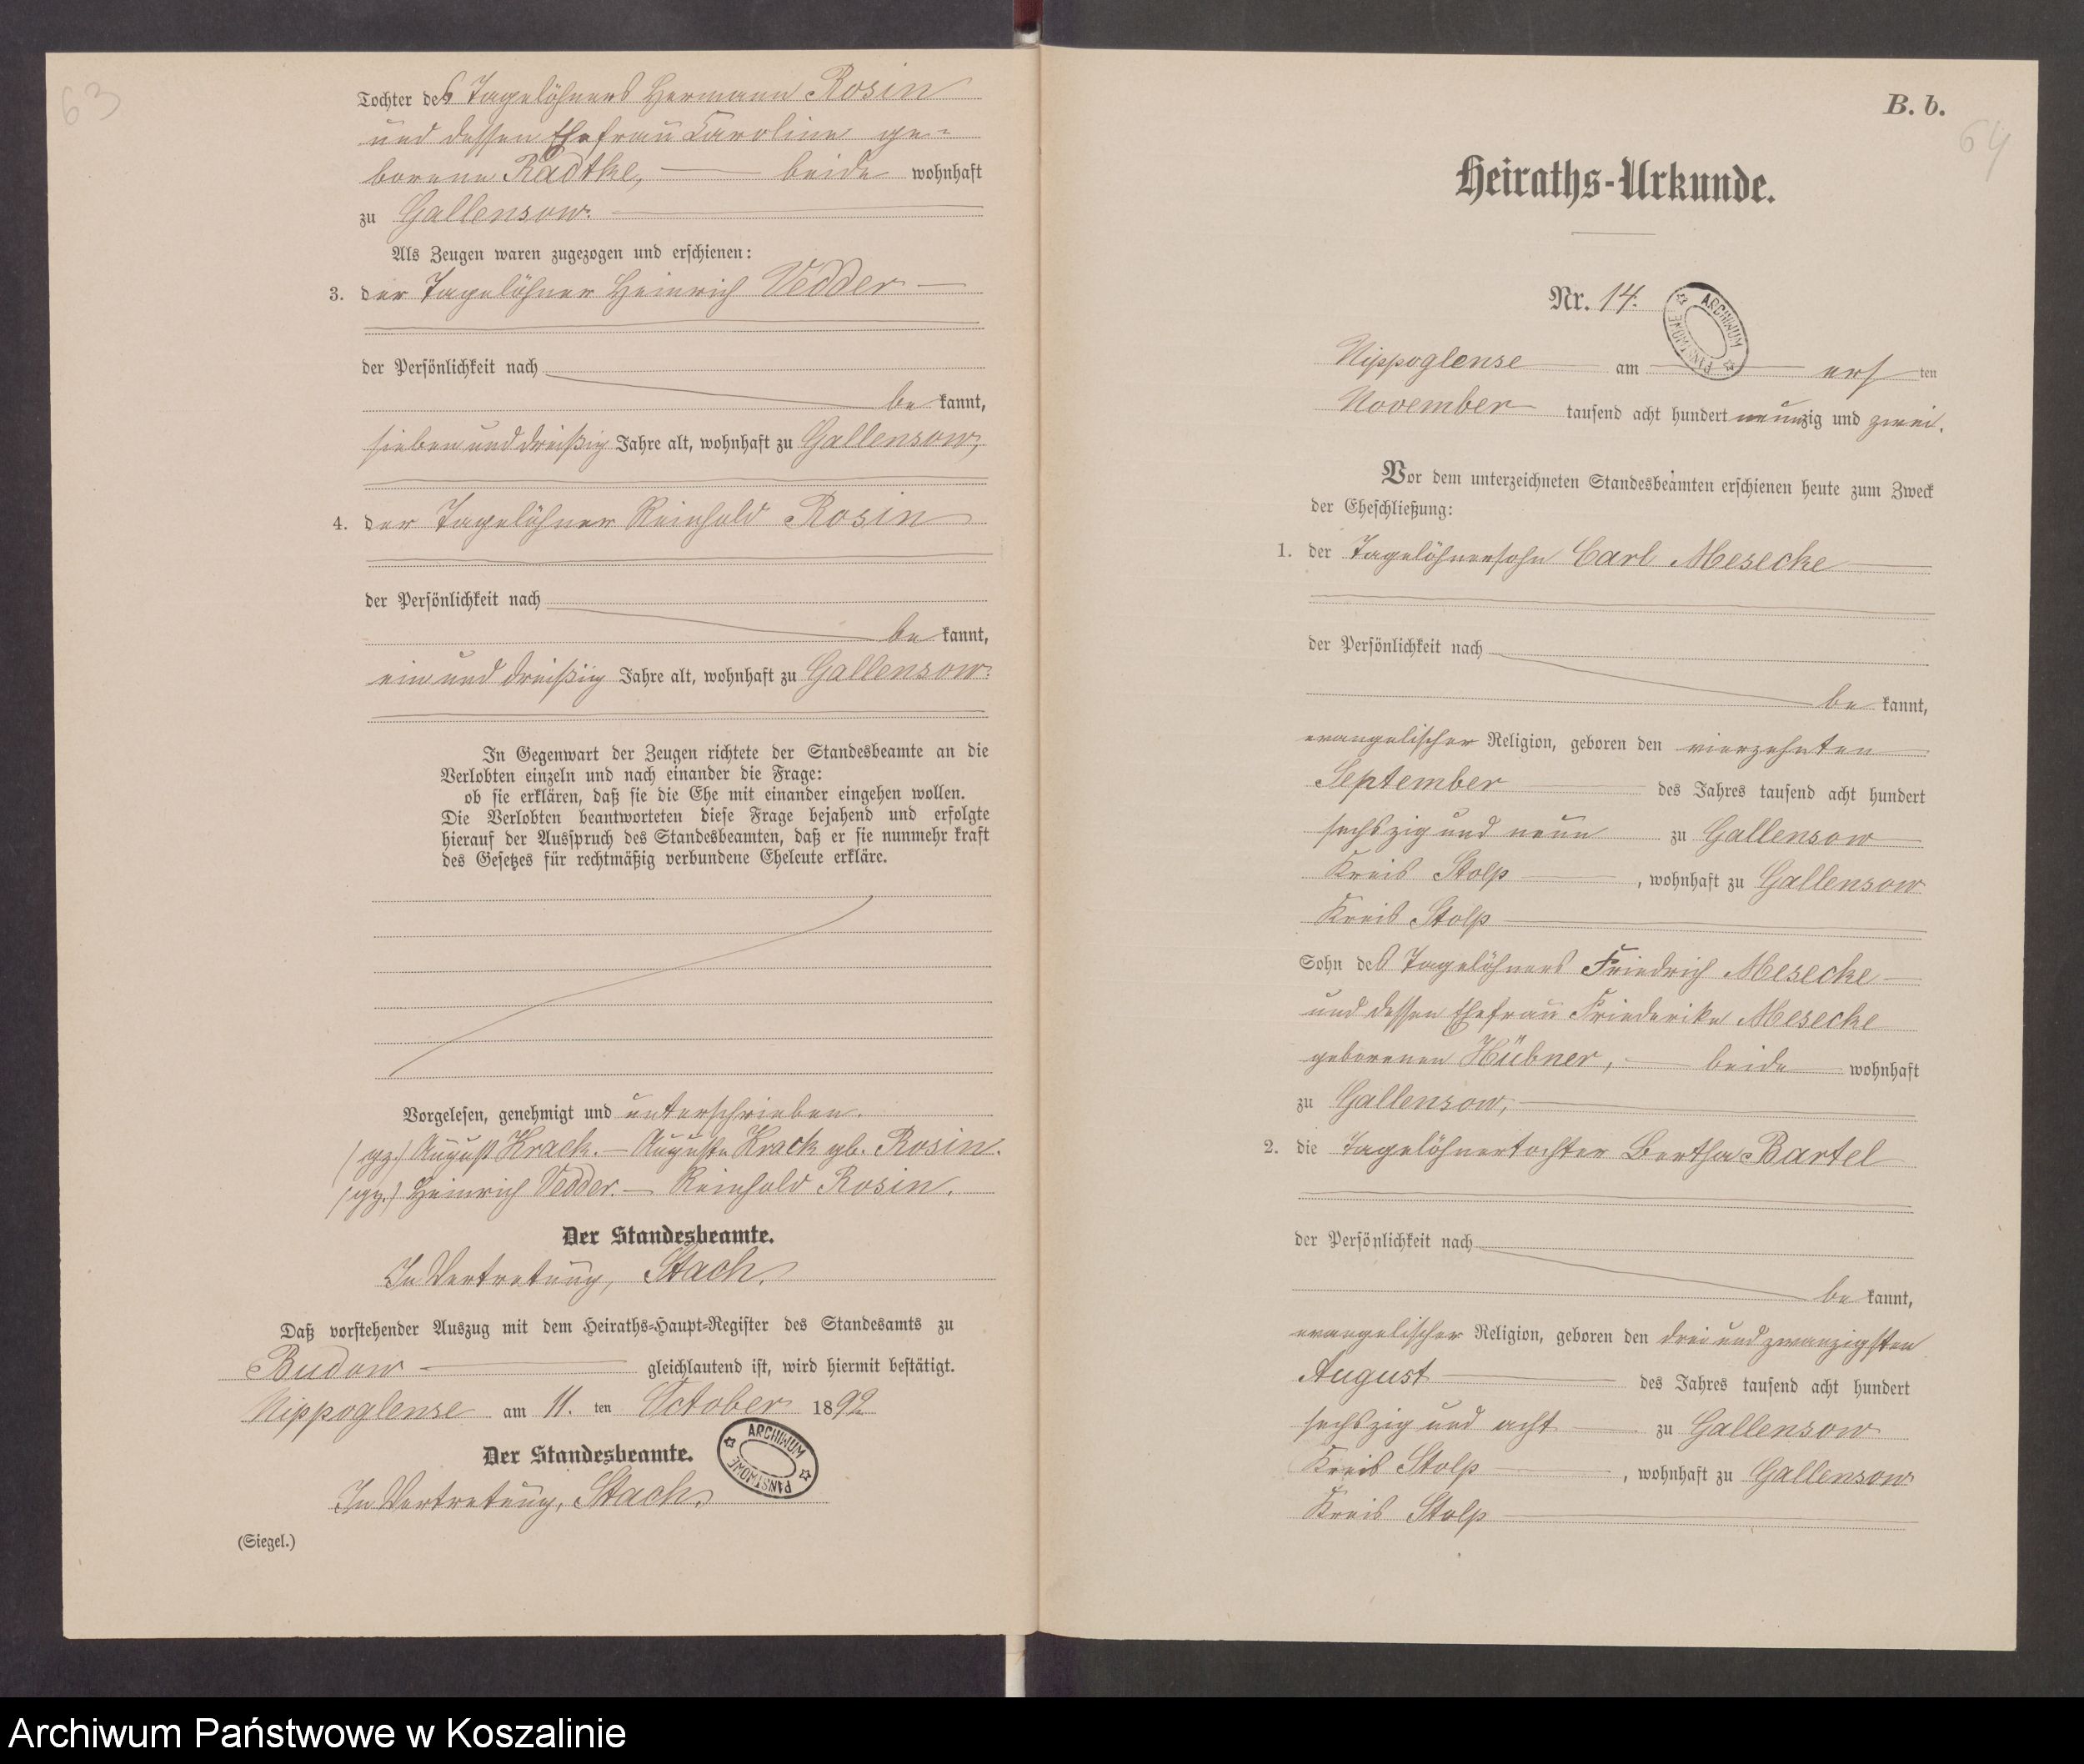 63
Tochter des Tagelöhners Hermann Rosin
und dessen Ehefrau Caroline ge-
borene Radtke, beide wohnhaft
zu Gallensow.
Als Zeugen waren zugezogen und erschienen:
3. der Tagelöhner Heinrich Vedder
der Persönlichkeit nach
be kannt,
sieben und dreißig Jahre alt, wohnhaft zu Gallensow,
4. der Tagelöhner Reinhold Rosin
der Persönlichkeit nach
be kannt,
ein und dreißig Jahre alt, wohnhaft zu Gallensow.
In Gegenwart der Zeugen richtete der Standesbeamte an die
Verlobten einzeln und nach einander die Frage:
ob sie erklären, daß sie die Ehe mit einander eingehen wollen.
Die Verlobten beantworteten diese Frage bejahend und erfolgte
hierauf der Ausspruch des Standesbeamten, daß er sie nunmehr kraft
des Gesetzes für rechtmäßig verbundene Eheleute erkläre.
Vorgelesen, genehmigt und unterschrieben.
(gz.) August Krack. – Auguste Krack gb. Rosin.
(gz.) Heinrich Vedder. – Reinhold Rosin.
Der Standesbeamte.
In Vertretung, Stach.
Daß vorstehender Auszug mit dem Heiraths-Haupt-Register des Standesamts zu
Budow gleichlautend ist, wird hiermit bestätigt.
Nippoglense am 11. ten October 1892
Der Standesbeamte.
ARCHIWUM PAŃSTWOWE
In Vertretung, Stach.
(Siegel.)
B. b.
64
Heiraths-Urkunde.
Nr. 14.
ARCHIWUM PAŃSTWOWE
Nippoglense am ers ten
November tausend acht hundert neunzig und zwei.
Vor dem unterzeichneten Standesbeamten erschienen heute zum Zweck
der Eheschließung:
1. der Tagelöhnersohn Carl Mesecke
der Persönlichkeit nach
be kannt,
evangelischer Religion, geboren den vierzehnten
September des Jahres tausend acht hundert
sechszig und neun zu Gallensow
Kreis Stolp, wohnhaft zu Gallensow
Kreis Stolp
Sohn des Tagelöhners Friedrich Mesecke
und dessen Ehefrau Friederike Mesecke
geborenen Hübner, beide wohnhaft
zu Gallensow,
2. die Tagelöhnertochter Bertha Bartel
der Persönlichkeit nach
be kannt,
evangelischer Religion, geboren den drei und zwanzigsten
August des Jahres tausend acht hundert
sechszig und acht zu Gallensow
Kreis Stolp, wohnhaft zu Gallensow
Kreis Stolp
Archiwum Państwowe w Koszalinie